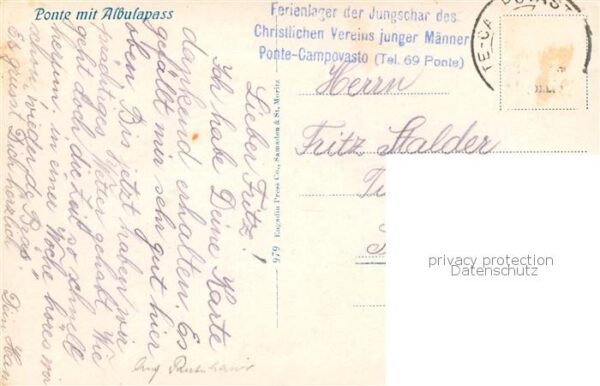 Ponte mit Albulapass
Ferienlager der Jungschar des
Christlichen Vereins junger Männer
Ponte-Campovasto (Tel. 69 Ponte)
Lieber Fritz!
Ich habe Deine Karte
dankend erhalten. Es
gefällt mir sehr gut hier
oben. Bis jetzt haben wir
prächtiges Wetter gehabt. Wie
geht doch die Zeit so schnell
herum, in einer Woche
schon wieder
Es grüsst Dich herzlich
Dein
979 Engadin Press Co., Samaden & St. Moritz
Herrn
Fritz Stalder
privacy protection
Datenschutz